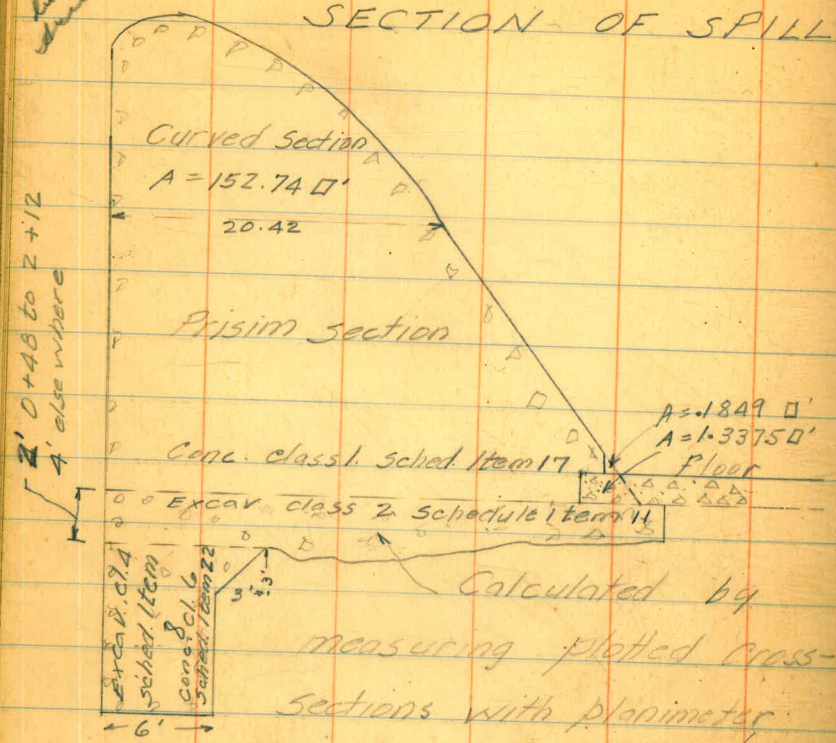 SECTION OF SPILL
Curved Section
A = 152.74 □'
20.42
2' 0+48 to 2+12
4' elsewhere
Prisim section
A = .1849 □'
A = 1.3375 □'
Floor
Conc. class 1. sched. Item 17
Excav class 2 schedule item 11
Excav. cl. 4
sched. Item
8
conc. cl. 6
Sched. Item 22
3'
3'
6'
Calculated by
measuring plotted cross-
sections with planimeter